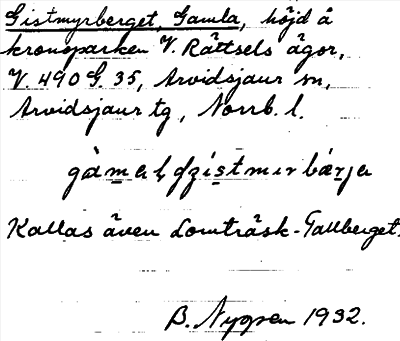 Gistmyrberget, Gamla, höjd å
kronoparken V. Rättsels ägor,
V. 490 G. 35, Arvidsjaur sn,
Arvidsjaur tg, Norrb. l.
Kallas även Lomträsk-Tallberget.
B. Nygren 1932.